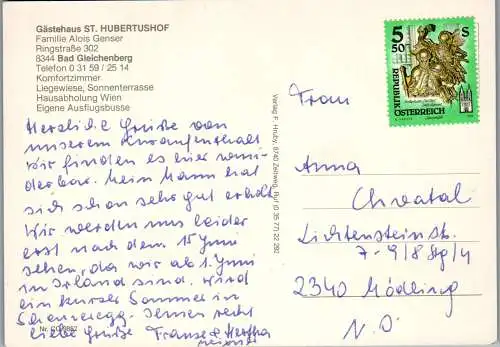 Gästehaus ST. HUBERTUSHOF
Familie Alois Genser
Ringstraße 302
8344 Bad Gleichenberg
Telefon 0 31 59 / 25 14
Komfortzimmer
Liegewiese, Sonnenterrasse
Hausabholung Wien
Eigene Ausflugsbusse
Herzliche Grüße von
unserem Kuraufenthalt
Wir finden es hier wun-
derbar. Mein Mann hat
sich schon sehr gut erholt
Wir werden uns leider
erst nach dem 15 Juni
sehen, da wir ab 1. Juni
in Irland sind. Wird
ein kurzer Sommer in
Ihnen recht
liebe Grüße Franz & Hertha
Nr. CO
Verlag F. Hruby, 8740 Zeltweg, Ruf (0 35 77) 22 292
5
50
S
REPUBLIK
ÖSTERREICH
Frau
Anna
Chvatal
Lichtensteinstr.
7-9/8 Stg/4
2340 Mödling
N.Ö.